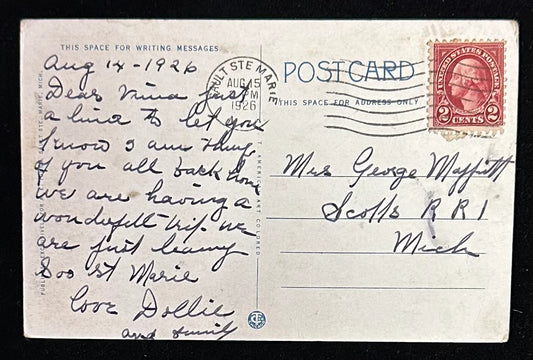 THIS SPACE FOR WRITING MESSAGES
Aug 14-1926
Dear Vina just
a line to let you
know I am thing
of you all back home
We are having a
wonderfull trip. We
are just leaving
Soo St Marie
Love Dollie
and
SAULT STE MARIE
AUG 15
PM
1926
POSTCARD
THIS SPACE FOR ADDRESS ONLY
UNITED STATES POSTAGE
2 CENTS 2
Mrs George Moffitt
Scotts R R 1
Mich
T. AMERICAN ART COLORED